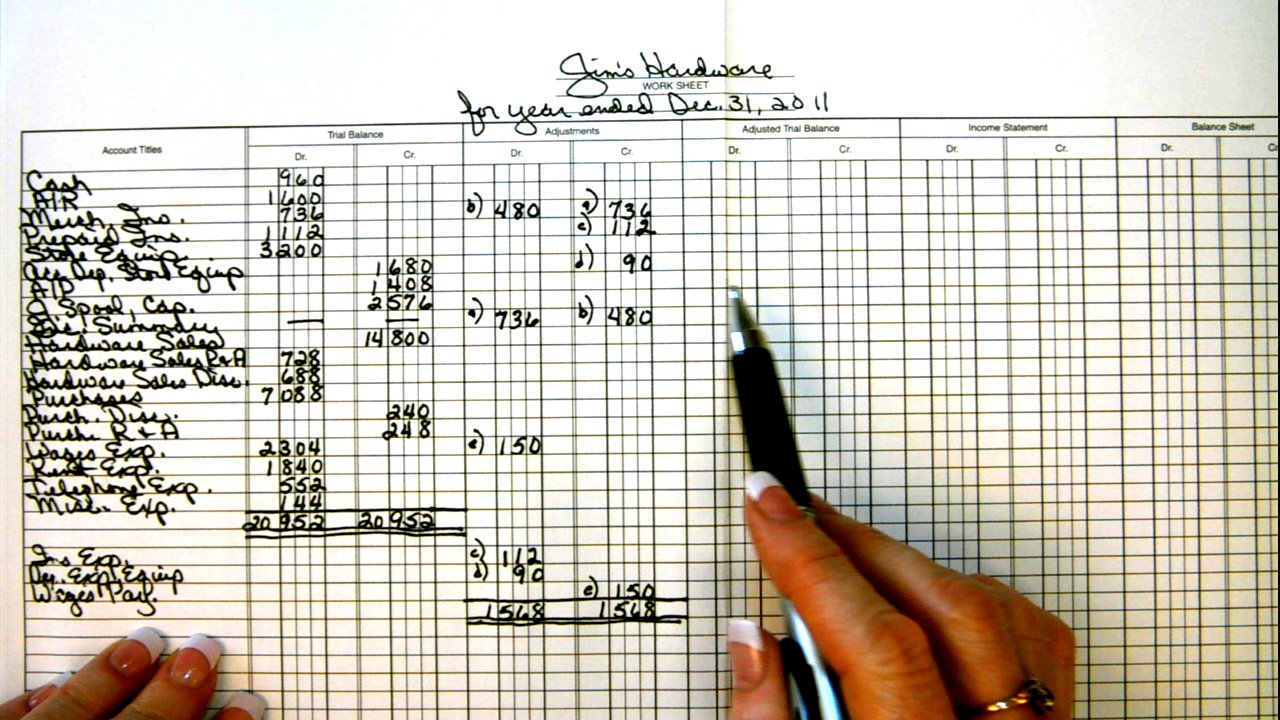 Jim's Hardware
WORK SHEET
for year ended Dec. 31, 2011
Account Titles Trial Balance Adjustments Adjusted Trial Balance Income Statement Balance Sheet
Dr. Cr. Dr. Cr. Dr. Cr. Dr. Cr. Dr. Cr
Cash 960
A/R 1600
Merch. Inv. 736 b) 480 a) 736
Prepaid Ins. 1112 c) 112
Store Equip. 3200
Acc. Dep. Store Equip 1680 d) 90
A/P 1408
O. Spool, Cap. 2576
Inc. Summary — — a) 736 b) 480
Hardware Sales 14800
Hardware Sales R+A 728
Hardware Sales Disc. 688
Purchases 7088
Purch. Disc. 240
Purch. R + A 248
Wages Exp. 2304 e) 150
Rent Exp. 1840
Telephone Exp. 552
Misc. Exp. 144
20952 20952
Ins Exp. c) 112
Dep. Exp. Equip d) 90
Wages Pay. e) 150
1568 1568